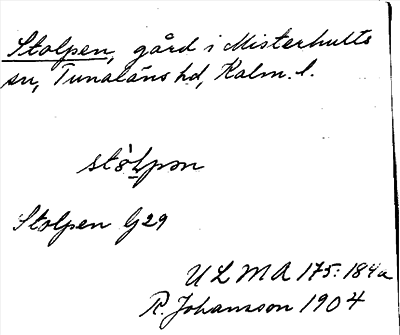 Stolpen, gård i Misterhults
sn, Tunaläns hd, Kalm. l.
Stolpen G29
ULMA 175:184a
R. Johansson 1904